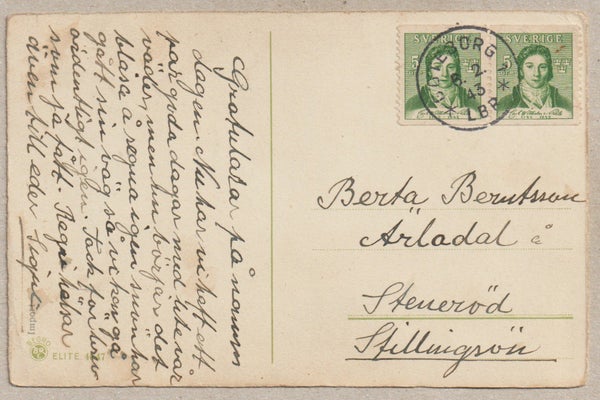 Gratulerar på namns
dagen. Nu har vi haft ett
par goda dagar med litevar
väder, men nu börjar det
blåsa å regna igen snön har
gått sin väg så vi kan gå
ordentligt igen. Tack för brev
som ja fått. Regn hälsar
även till eder
SVERIGE
SVERIGE
5
5
GÖTEBORG
8.2.
43
LBR
Berta Berntsson
Ärladal å
Steneröd
Stillingsön
Import
ELITE